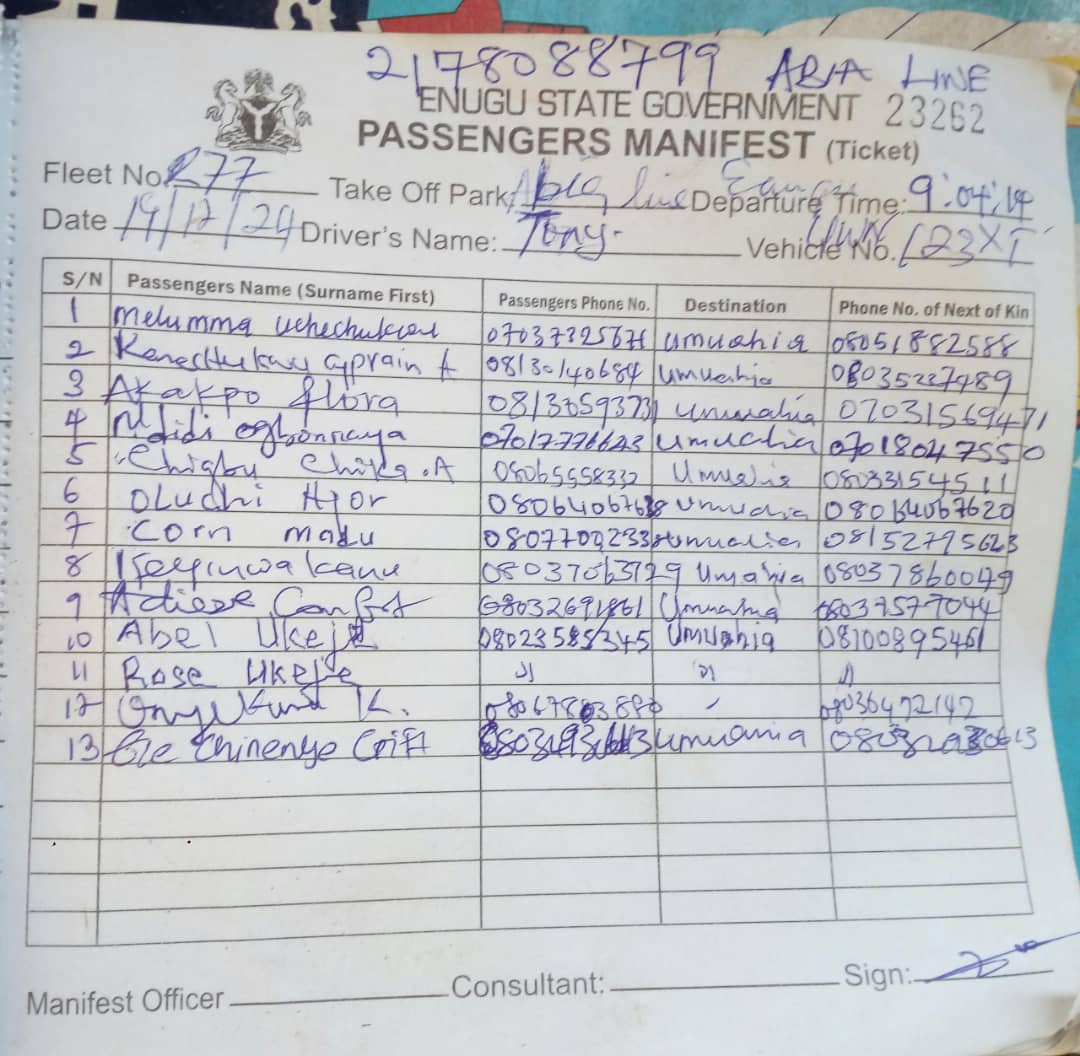 2178088799 ABIA LINE
ENUGU STATE GOVERNMENT 23262
PASSENGERS MANIFEST (Ticket)
Fleet No R77 Take Off Park Abia line Enugu Departure Time: 9:04:14
Date 19/12/24 Driver's Name: Tony. Vehicle No. UWN 123XT
S/N Passengers Name (Surname First) Passengers Phone No. Destination Phone No. of Next of Kin
1 Melumma Uchechukwu 07037325676 Umuahia 08051882588
2 Cyprain A 08130140684 Umuahia 08035227489
3 Akakpo flora 08137659373 Umuahia 07031569471
4 Ndidi ogbonnaya 07017776643 Umuahia 07018047550
5 Chigbu Chika .A 08065558332 Umuahia 08033154511
6 Oluchi Ajor Umuahia 08064067620
7 Corn madu Umuahia 08152795623
8 kanu 08037063729 Umahia 08037860049
9 Adieze 08032691861 Umuahia 08037577044
10 Abel Ukeje 08023585345 Umuahia 08100895461
11 Rose Ukeje " " "
12 K. 08036472142
13 Eze Chinenye Gift Umuahia
Manifest Officer Consultant: Sign: